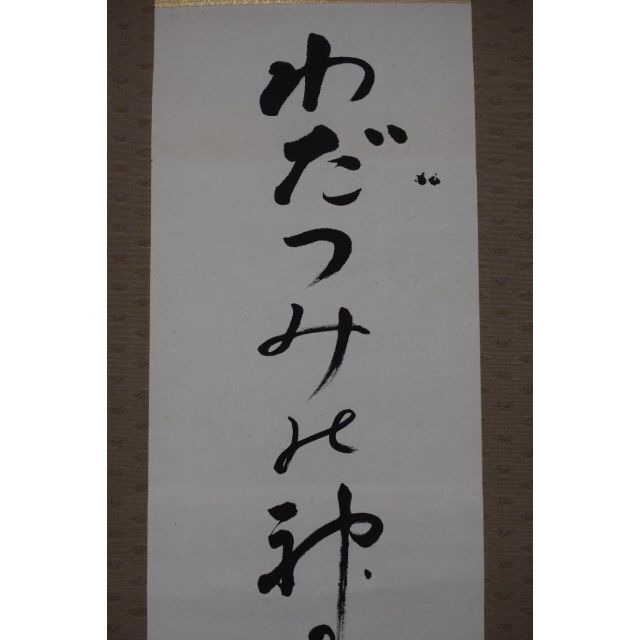 わだつみの神